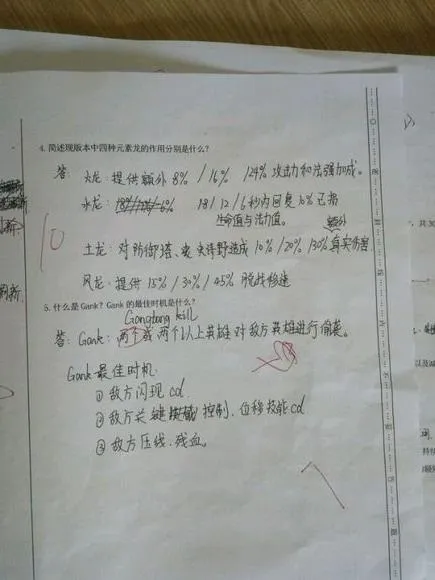 4. 简述现版本中四种元素龙的作用分别是什么?
答: 火龙: 提供额外 8% / 16% / 24% 攻击力和法强加成。
水龙: 18 / 12 / 6 秒内回复 10% 已损
生命值与法力值。
额外
土龙: 对防御塔、史诗野造成 10% / 20% / 30% 真实伤害
10
风龙: 提供 15% / 30% / 45% 脱战移速
5. 什么是 Gank? Gank 的最佳时机是什么?
Gangbang kill
答: Gank: 两个或两个以上英雄对敌方英雄进行偷袭。
Gank 最佳时机
① 敌方闪现 cd
② 敌方关键控制、位移技能 cd
③ 敌方压线、残血。
7
刷新